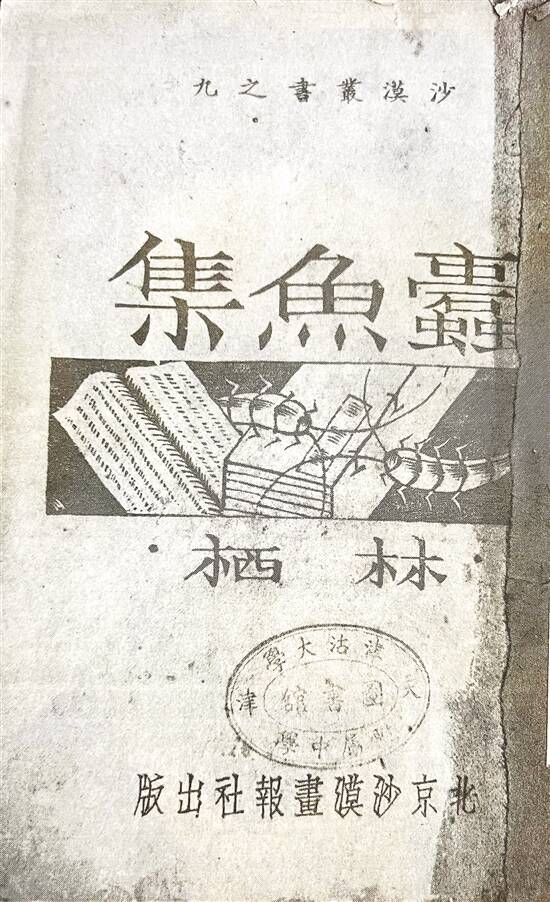 沙漠叢書之九
蠹魚集
林栖
津沽大學
天津
圖書館
附屬中學
北京沙漠畫報社出版